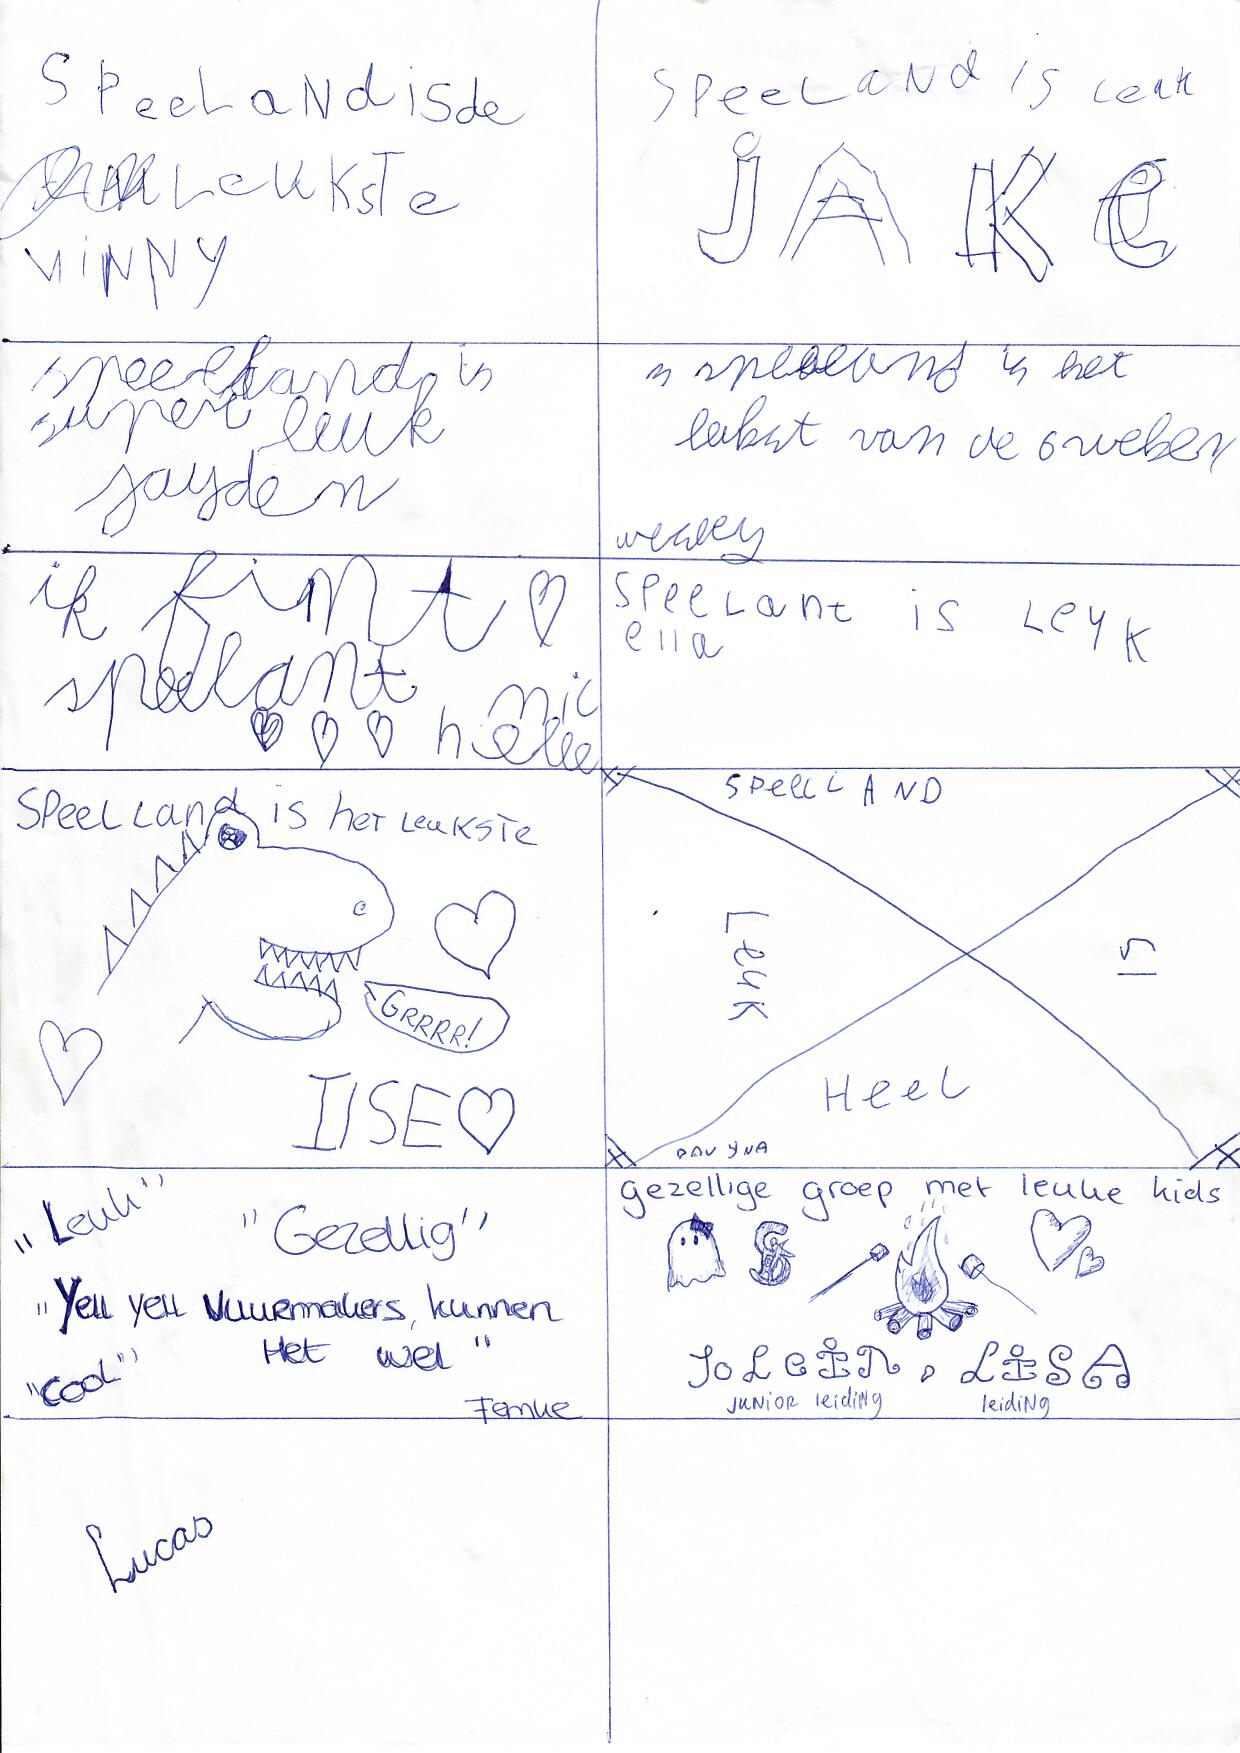 SPeeLaNdisde
LeukSTe
viNNY
SPeeLaNd is Leuk
jAKe
speelland is
super leuk
jayden
speeland is het
lukst van de 6 weken
wesley
ik fint
speelant
mic
helle
SPeeLant is Leyk
ella
SPeeLLand is het LeukSTe
GRRRR!
IlSE
SPeeLLAND
is
HeeL
Leuk
DAVYNA
"Leuk"
"Gezellig"
"Yell yell Vuurmakers, kunnen
Het wel"
"cool"
Femke
gezellige groep met leuke kids
JoLeiN, LiSA
JUNiOR leidiNg leidiNg
Lucas